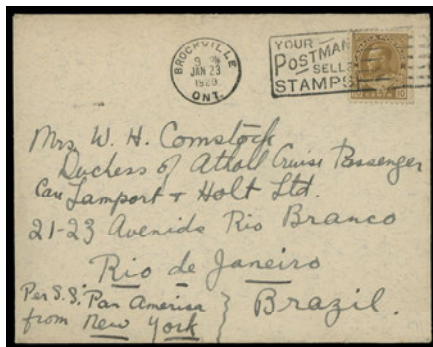 BROCKVILLE
JAN 23
ONT.
YOUR
POSTMAN
SELLS
STAMPS
Mrs. W. H. Comstock
Duchess of Atholl Cruise Passenger
Care Lamport + Holt Ltd.
21-23 Avenida Rio Branco
Rio de Janeiro
Brazil.
Per S.S. "Pan America
from New York